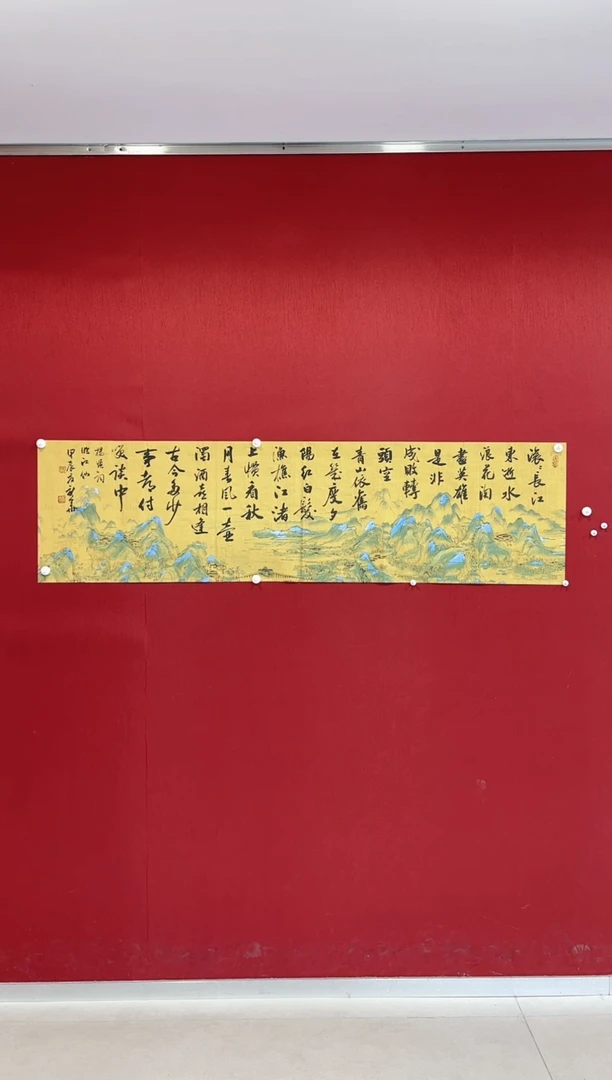 滚〻長江
東逝水
浪花淘
盡英雄
是非
成敗轉
頭空
青山依舊
在幾度夕
陽紅白髮
漁樵江渚
上慣看秋
月春風一壺
濁酒喜相逢
古今多少
事都付
笑談中
楊慎詞
临江仙
甲辰